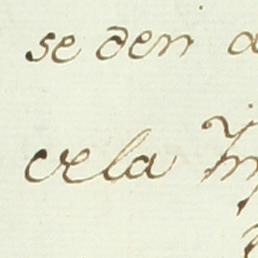 se den
cela